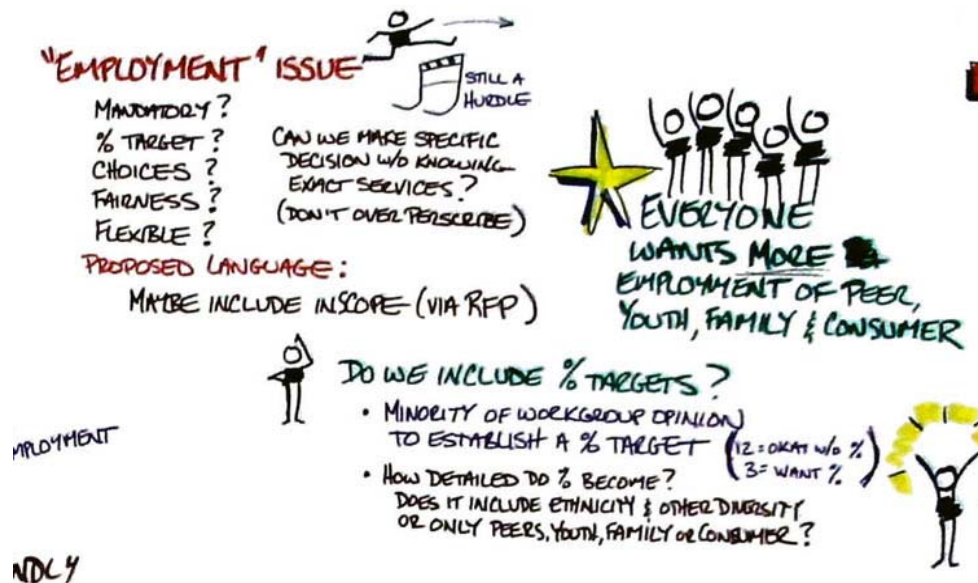 "EMPLOYMENT" ISSUE
STILL A
HURDLE
MANDATORY?
% TARGET?
CHOICES?
FAIRNESS?
FLEXIBLE?
CAN WE MAKE SPECIFIC
DECISION W/O KNOWING
EXACT SERVICES?
(DON'T OVER PERSCRIBE)
PROPOSED LANGUAGE:
MAYBE INCLUDE IN SCOPE (VIA RFP)
EVERYONE
WANTS MORE
EMPLOYMENT OF PEER,
YOUTH, FAMILY & CONSUMER
DO WE INCLUDE % TARGETS?
• MINORITY OF WORKGROUP OPINION
TO ESTABLISH A % TARGET
(12 = OKAY W/O %
3 = WANT %)
• HOW DETAILED DO % BECOME?
DOES IT INCLUDE ETHNICITY & OTHER DIVERSITY
OR ONLY PEERS, YOUTH, FAMILY OR CONSUMER?
MPLOYMENT
NDLY